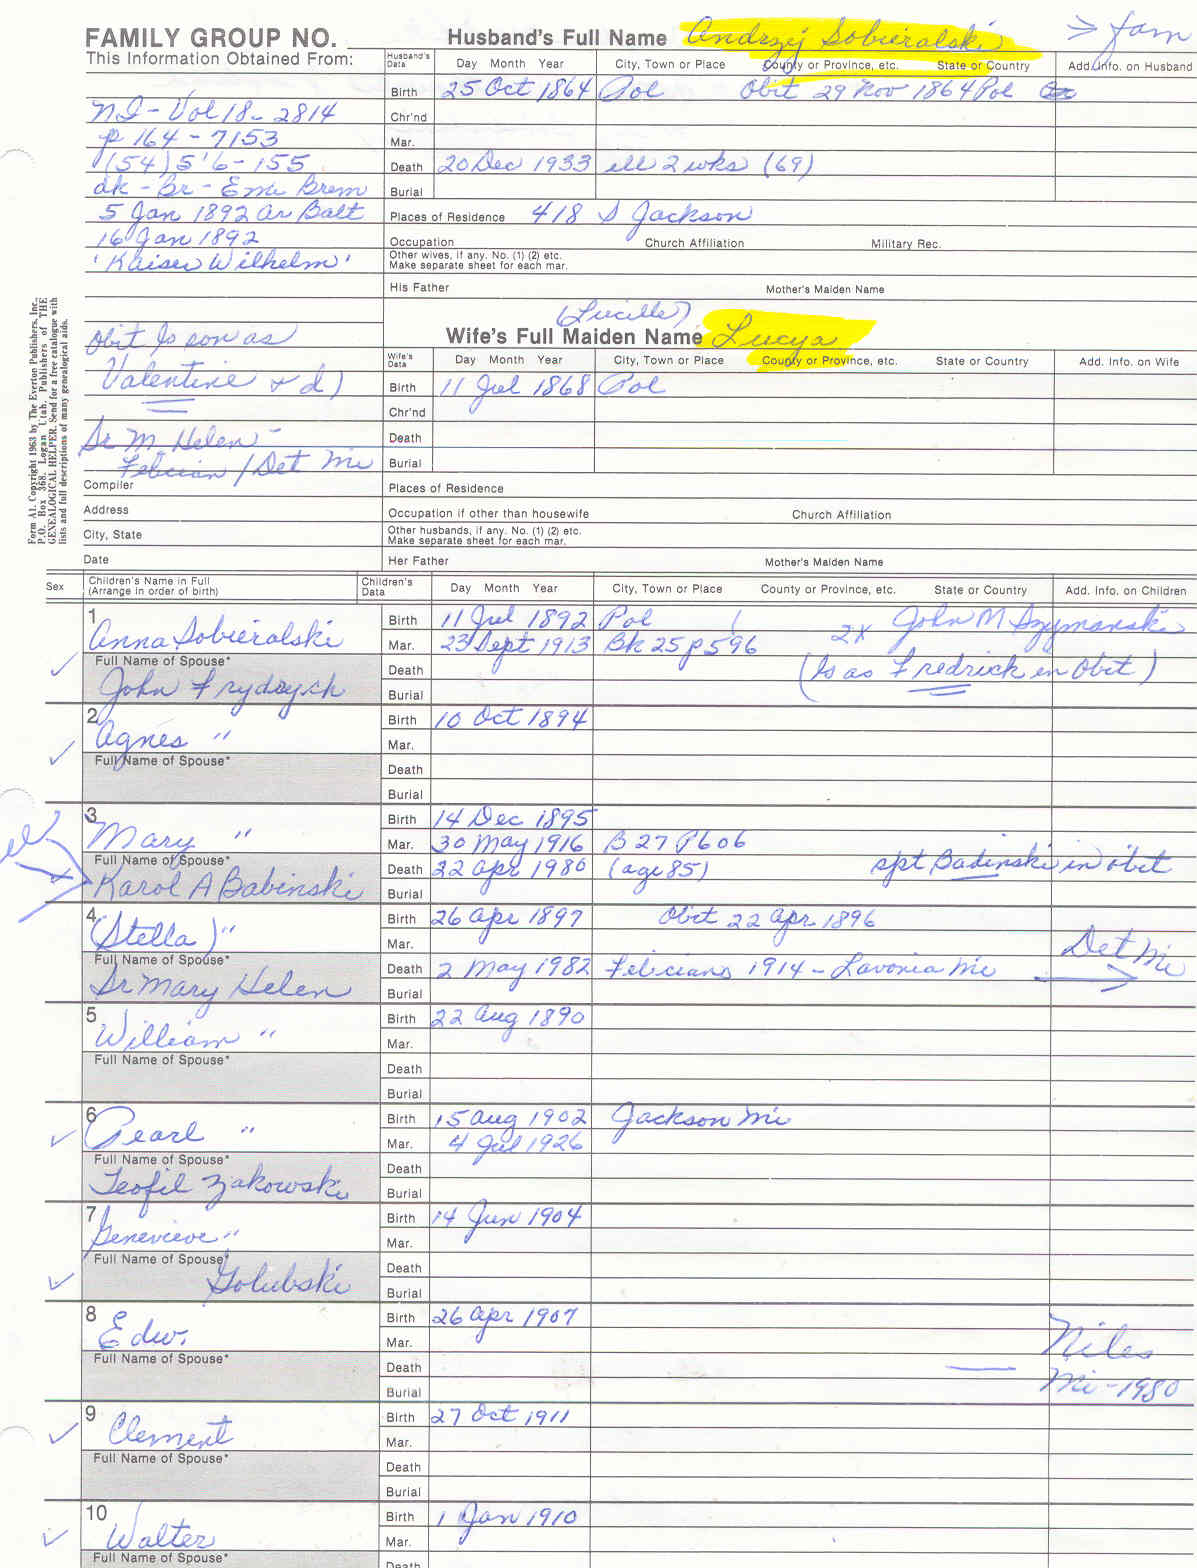 FAMILY GROUP NO.
This Information Obtained From:
NI - Vol 18 - 2814
p 164 - 7153
(54) 5'6 - 155
dk - Br - Emi Brem
5 Jan 1892 Ar Balt
16 Jan 1892
'Kaiser Wilhelm'
Obit Is son as
Valentine + d)
Sr M. Helen -
Felician / Det Mi
Compiler
Address
City, State
Date
Form A1. Copyright 1963 by The Everton Publishers, Inc.,
P.O. Box 368, Logan Utah. Publishers of THE
GENEALOGICAL HELPER. Send for a free catalogue with
lists and full descriptions of many genealogical aids.
Husband's Full Name Andrzej Sobieralski > fam
Husband's Data Day Month Year City, Town or Place County or Province, etc. State or Country Add. Info. on Husband
Birth 25 Oct 1864 Pol Obit 29 Nov 1864 Pol
Chr'nd
Mar.
Death 20 Dec 1933 ill 2 wks (69)
Burial
Places of Residence 418 S Jackson
Occupation Church Affiliation Military Rec.
Other wives, if any. No. (1) (2) etc.
Make separate sheet for each mar.
His Father Mother's Maiden Name
(Lucille)
Wife's Full Maiden Name Lucya
Wife's Data Day Month Year City, Town or Place County or Province, etc. State or Country Add. Info. on Wife
Birth 11 Jul 1868 Pol
Chr'nd
Death
Burial
Places of Residence
Occupation if other than housewife Church Affiliation
Other husbands, if any. No. (1) (2) etc.
Make separate sheet for each mar.
Her Father Mother's Maiden Name
Sex Children's Name in Full (Arrange in order of birth) Children's Data Day Month Year City, Town or Place County or Province, etc. State or Country Add. Info. on Children
1 Birth 11 Jul 1892 Pol 2x John M Szymanski
Anna Sobieralski Mar. 23 Sept 1913 Bk 25 p 596
Full Name of Spouse* Death (Is as Fredrick in Obit)
John Frydrych Burial
2 Birth 10 Oct 1894
Agnes " Mar.
Full Name of Spouse* Death
Burial
3 Birth 14 Dec 1895
Mary " Mar. 30 May 1916 B 27 P 606
Full Name of Spouse* Death 22 Apr 1980 (age 85) spt Badinski in obit
Karol A Babinski Burial
4 Birth 26 Apr 1897 Obit 22 Apr 1896
(Stella) " Mar. Det Mi
Full Name of Spouse* Death 2 May 1982 Felicians 1914 - Lavonia Mi
Sr Mary Helen Burial
5 Birth 22 Aug 1890
William " Mar.
Full Name of Spouse* Death
Burial
6 Birth 15 Aug 1902 Jackson Mi
Pearl " Mar. 4 Jul 1926
Full Name of Spouse* Death
Teofil Zakowski Burial
7 Birth 14 Jun 1904
Genevieve " Mar.
Full Name of Spouse* Death
Golubski Burial
8 Birth 26 Apr 1907
Edw. Mar. Niles
Full Name of Spouse* Death
Burial Mi - 1980
9 Birth 27 Oct 1911
Clement Mar.
Full Name of Spouse* Death
Burial
10 Birth 1 Jan 1910
Walter Mar.
Full Name of Spouse* Death